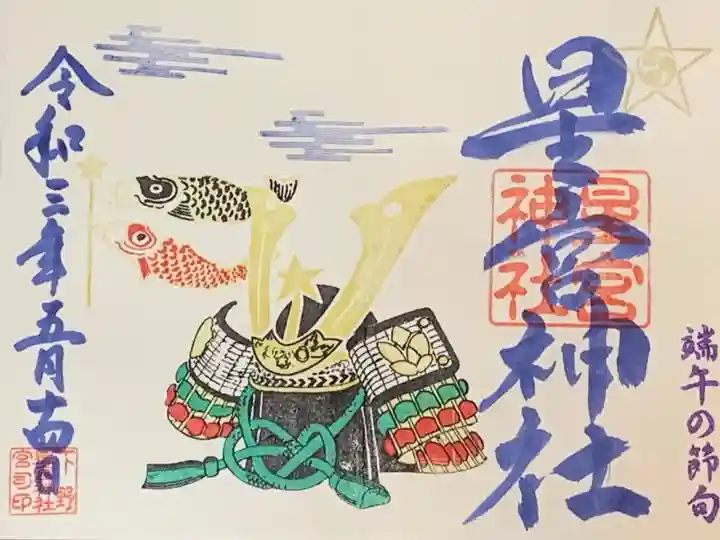 星宮神社
星宮
神社
端午の節句
令和三年五月十四日
下野
宮司印